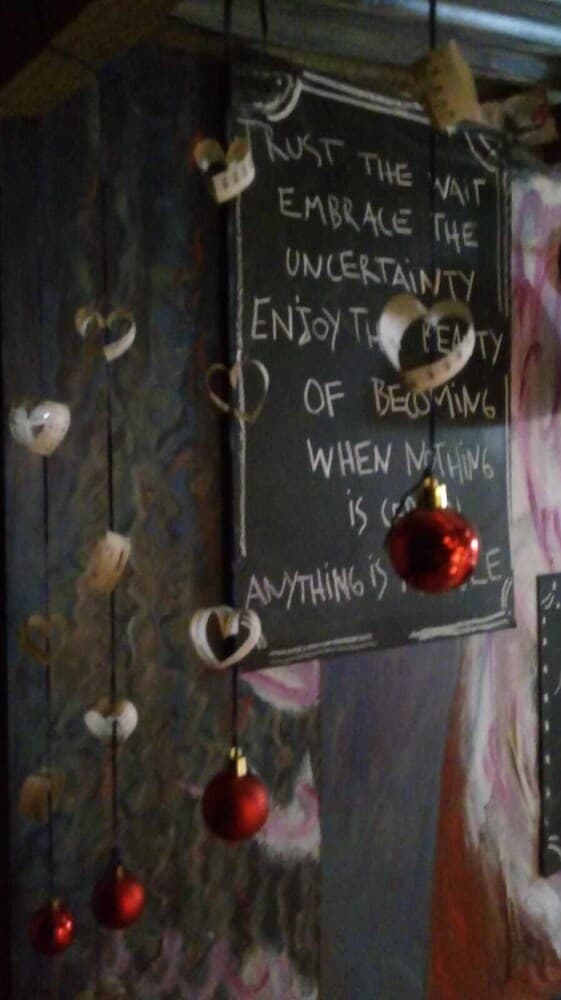 TRUST THE WAIT
EMBRACE THE
UNCERTAINTY
ENJOY THE BEAUTY
OF BECOMING
WHEN NOTHING
IS
ANYTHING IS